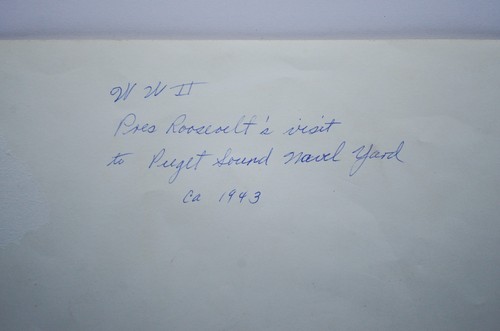 W W II
Pres Roosevelt's visit
to Puget Sound Navel Yard
ca 1943